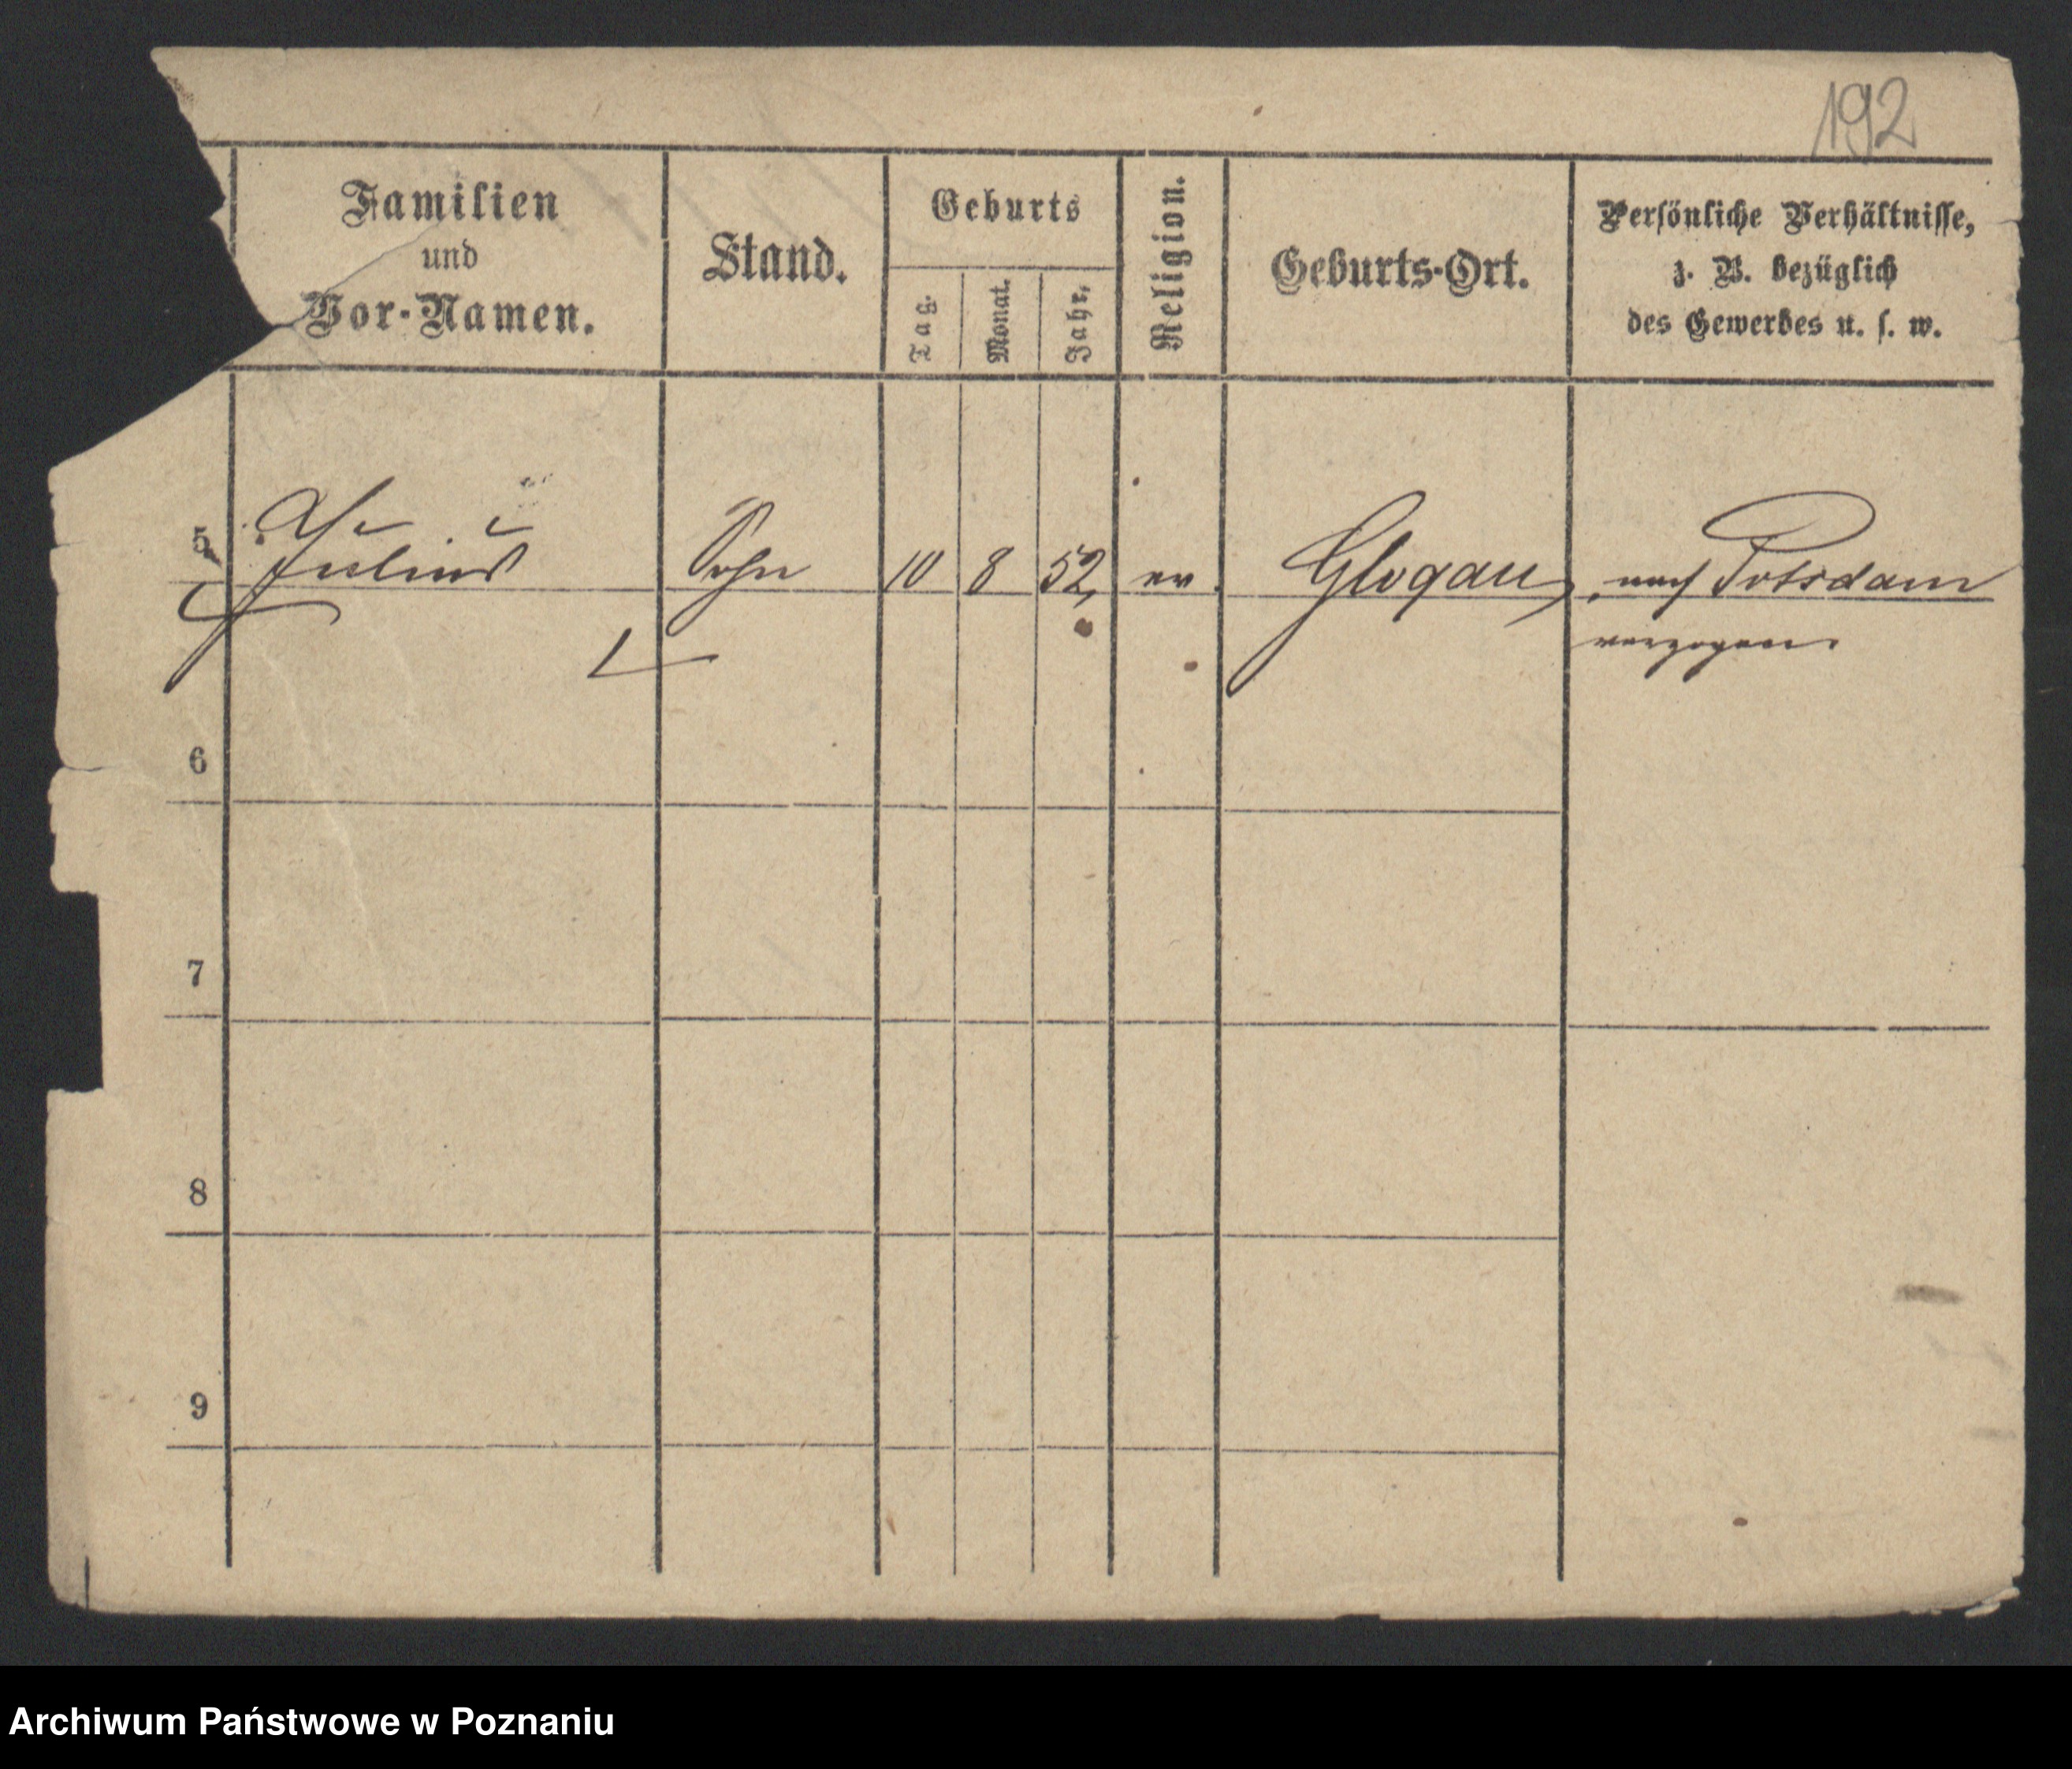 192
Familien
und
Vor-Namen.
Stand.
Geburts
Tag.
Monat.
Jahr.
Religion.
Geburts-Ort.
Persönliche Verhältnisse,
z. B. bezüglich
des Gewerbes u. s. w.
5
Julius Sohn 10 8 52, ev. Glogau, nach Potsdam
verzogen.
6
7
8
9
Archiwum Państwowe w Poznaniu